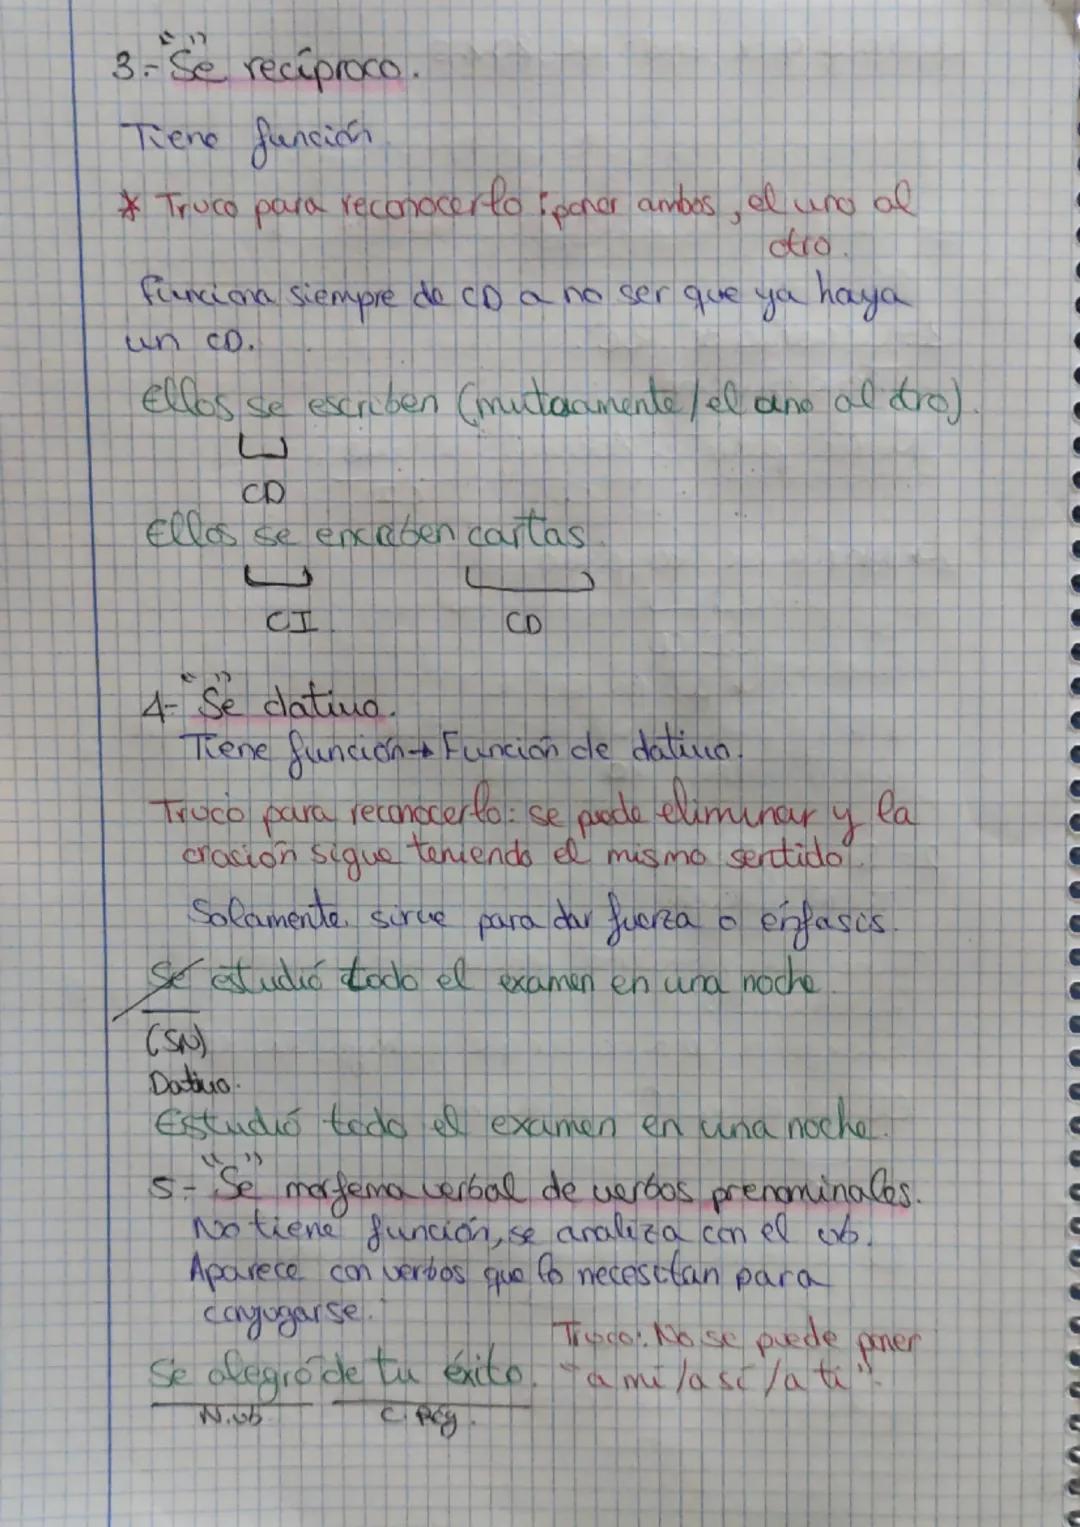 3.- "Se" recíproco.
Tiene función
* Truco para reconocerlo: poner ambos, el uno al
otro.
Funciona siempre de CD a no ser que ya haya
un CD.
Ellos se escriben (mutuamente/el uno al otro).
CD
Ellos se escriben cartas.
CI CD
4- "Se" dativo.
Tiene función → Función de dativo.
Truco para reconocerlo: se puede eliminar y la
oración sigue teniendo el mismo sentido.
Solamente sirve para dar fuerza o énfasis.
Se estudió todo el examen en una noche.
(SN)
Dativo.
Estudió todo el examen en una noche.
5- "Se" morfema verbal de verbos prenominales.
No tiene función, se analiza con el vb.
Aparece con verbos que lo necesitan para
conjugarse.
Truco: No se puede poner
Se alegró de tu éxito. "a mí/a sí/a ti".
N.vb C. Reg.